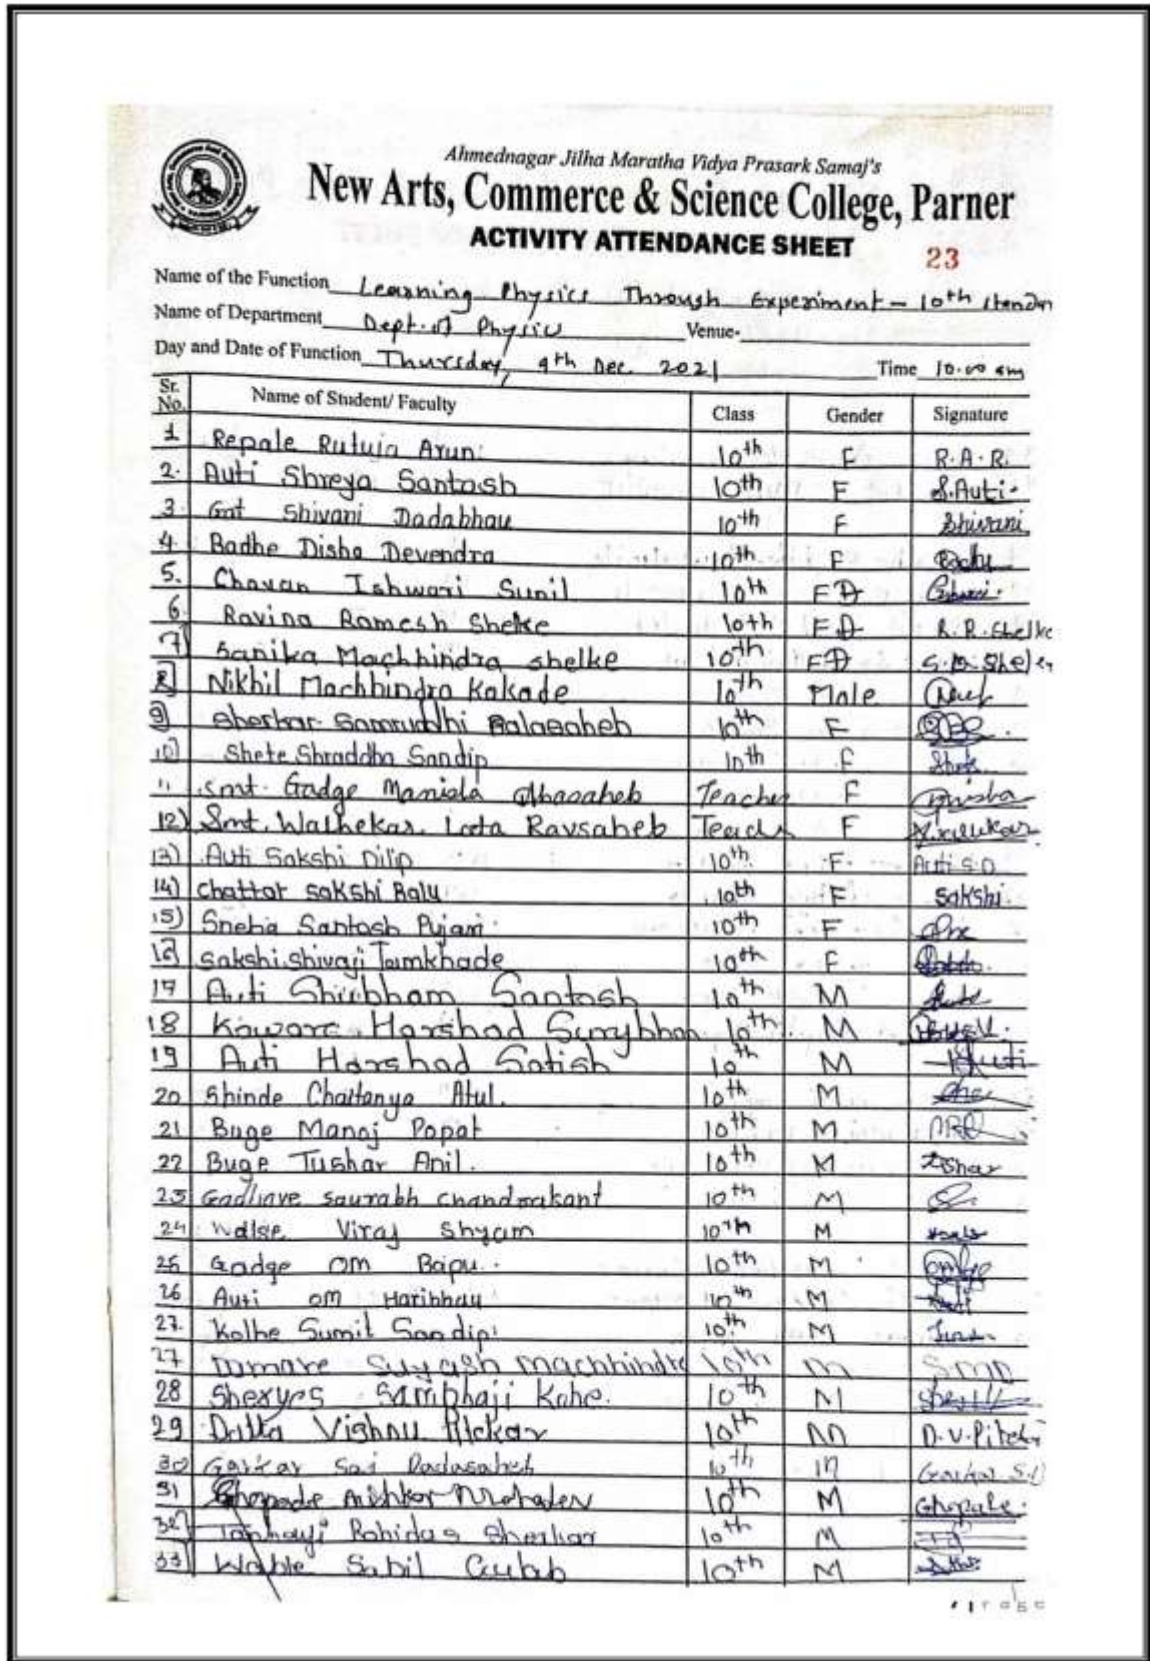 Ahmednagar Jilha Maratha Vidya Prasark Samaj's
New Arts, Commerce & Science College, Parner
ACTIVITY ATTENDANCE SHEET
23
Name of the Function Learning Physics Through Experiment - 10th
Name of Department Dept. of Physics Venue-
Day and Date of Function Thursday, 9th Dec. 2021 Time 10.00 am
Sr. No. Name of Student/ Faculty Class Gender Signature
1 Repale Rutuja Arun 10th F R.A.R.
2. Auti Shreya Santosh 10th F S.Auti
3. Gat Shivani Dadabhau 10th F Shivani
4. Badhe Disha Devendra 10th F
5. Chavan Ishwari Sunil 10th F
6. Ravina Ramesh Shelke 10th F R.R.Shelke
7) Sanika Machhindra Shelke 10th F
8) Nikhil Machhindra Kakade 10th Male
9) Sherkar Samruddhi Balasaheb 10th F
10) Shete Shraddha Sandip 10th F
11 Smt. Gadge Teacher F
12) Smt. Walhekar Lata Ravsaheb F
13) Auti Sakshi Dilip 10th F Auti S.D
14) Chattar Sakshi Balu 10th F Sakshi
15) Sneha Santosh Pujari 10th F
16) Sakshi Shivaji Tamkhade 10th F
17 Auti Shubham Santosh 10th M
18 Kaware Harshad 10th M
19 Auti Harshad Satish 10th M
20 Shinde Chaitanya Atul. 10th M
21 Buge Manoj Popat 10th M
22 Buge Tushar Anil. 10th M
23 Gadhave saurabh chandrakant 10th M
24 Walse Viraj Shyam 10th M
25 Gadge om Bapu 10th M
26 Auti om Haribhau 10th M
27. Kolhe Sumit Sandip 10th M
27 Suyash machhindra 10th M
28 Sambhaji 10th M
29 Datta Vishnu 10th M
30 Garkar Sai Dadasaheb 10th M
31 10th M
32) Rohidas Sherkar 10th M
33) Wable Sahil 10th M